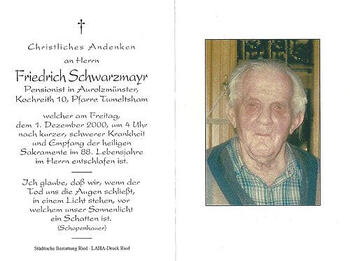 Christliches Andenken
an Herrn
Friedrich Schwarzmayr
Pensionist in Aurolzmünster,
Kochreith 10, Pfarre Tumeltsham
welcher am Freitag,
dem 1. Dezember 2000, um 4 Uhr
nach kurzer, schwerer Krankheit
und Empfang der heiligen
Sakramente im 88. Lebensjahre
im Herrn entschlafen ist.
Ich glaube, daß wir, wenn der
Tod uns die Augen schließt,
in einem Licht stehen, vor
welchem unser Sonnenlicht
ein Schatten ist.
(Schopenhauer)
Städtische Bestattung Ried · LAHA-Druck Ried